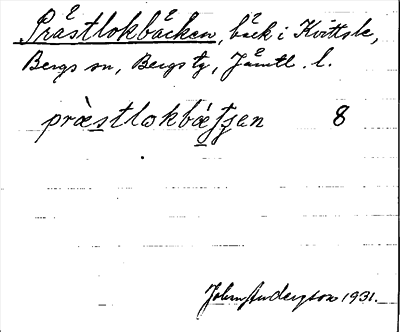 Prästlokbäcken, bäck i Kvittsle,
Bergs sn, Bergs tg, Jämtl. l.
præ̀stlokbǽʃʃen 8
John Andersson 1931.